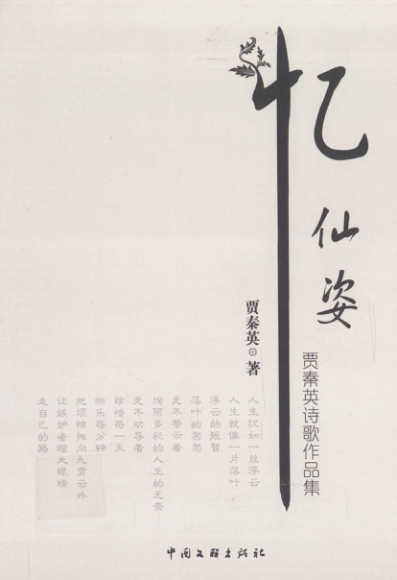 忆仙姿
贾秦英诗歌作品集
贾秦英⊙著
人生犹如一丝浮云
人生就像一片落叶
浮云的短暂
落叶的匆匆
无不警示着
绚丽多彩的人生的无奈
无不劝导着
珍惜每一天
快乐每分钟
把烦恼抛向九霄云外
让嫉妒者瞠大眼睛
走自己的路
中国文联出版社